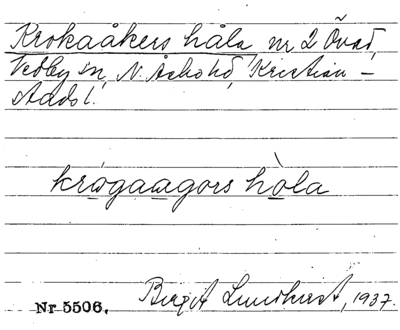 Krokaåkers håla nr 2 Övad,
Vedby sn, N. Åsbo hd, Kristian-
stads l.
krògaaagors hòla
Nr 5506. Birgit Lundkvist, 1937.